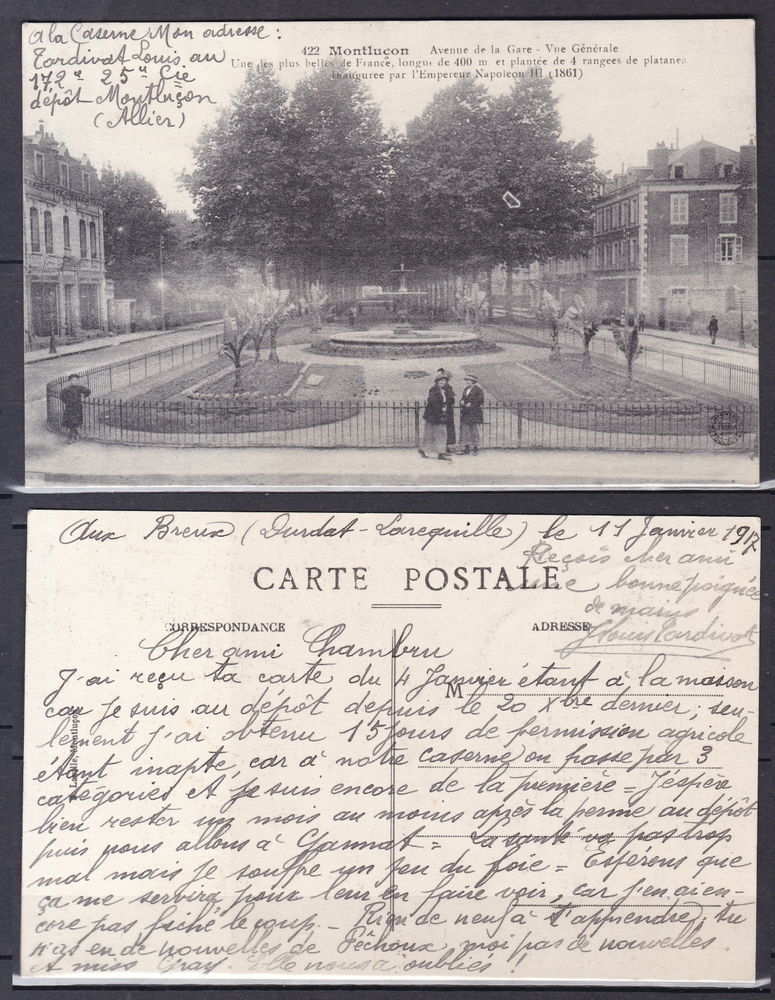 a la Caserne Mon adresse :
Tardivat Louis au
172e 25e Cie
dépôt Montluçon
(Allier)
422 Montluçon Avenue de la Gare - Vue Générale
Une des plus belles de France, longue de 400 m. et plantée de 4 rangées de platanes
Inaugurée par l'Empereur Napoléon III (1861)
Aux Breux (Durdat-Larequille) le 11 Janvier 1917
Reçois cher ami
une bonne poignée
de mains
Louis Tardivat
CARTE POSTALE
CORRESPONDANCE
ADRESSE
M
Cher ami Chambru
J'ai reçu ta carte du 4 Janvier étant à la maison
car je suis au dépôt depuis le 20 Xbre dernier ; seu-
lement j'ai obtenu 15 jours de permission agricole
étant inapte, car à notre caserne on passe par 3
catégories et je suis encore de la première = J'espère
bien rester un mois au moins après la perme au dépôt
puis nous allons à Gannat = La santé va pas trop
mal mais je souffre un peu du foie = Espérons que
ça me servira pour leur en faire voir, car j'en ai en-
core pas fichê le coup. - Rien de neuf à t'apprendre ; tu
n'as eu de nouvelles de Pêchoux, moi pas de nouvelles.
et miss Gray. Elle nous a oubliés !